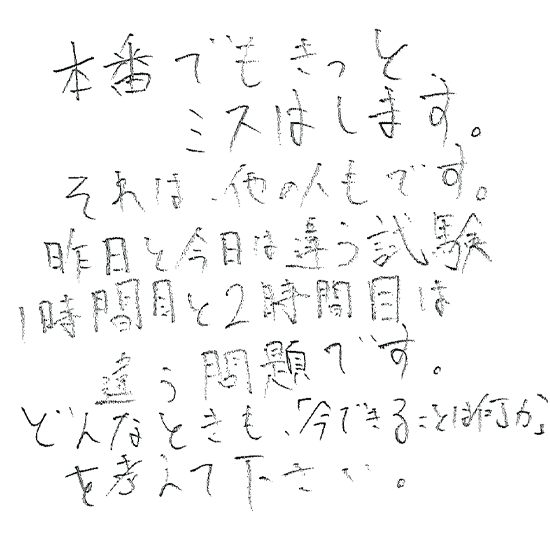 本番でもきっと
ミスはします。
それは、他の人もです。
昨日と今日は違う試験
1時間目と2時間目は
違う問題です。
どんなときも、「今できることは何か」
を考えて下さい。